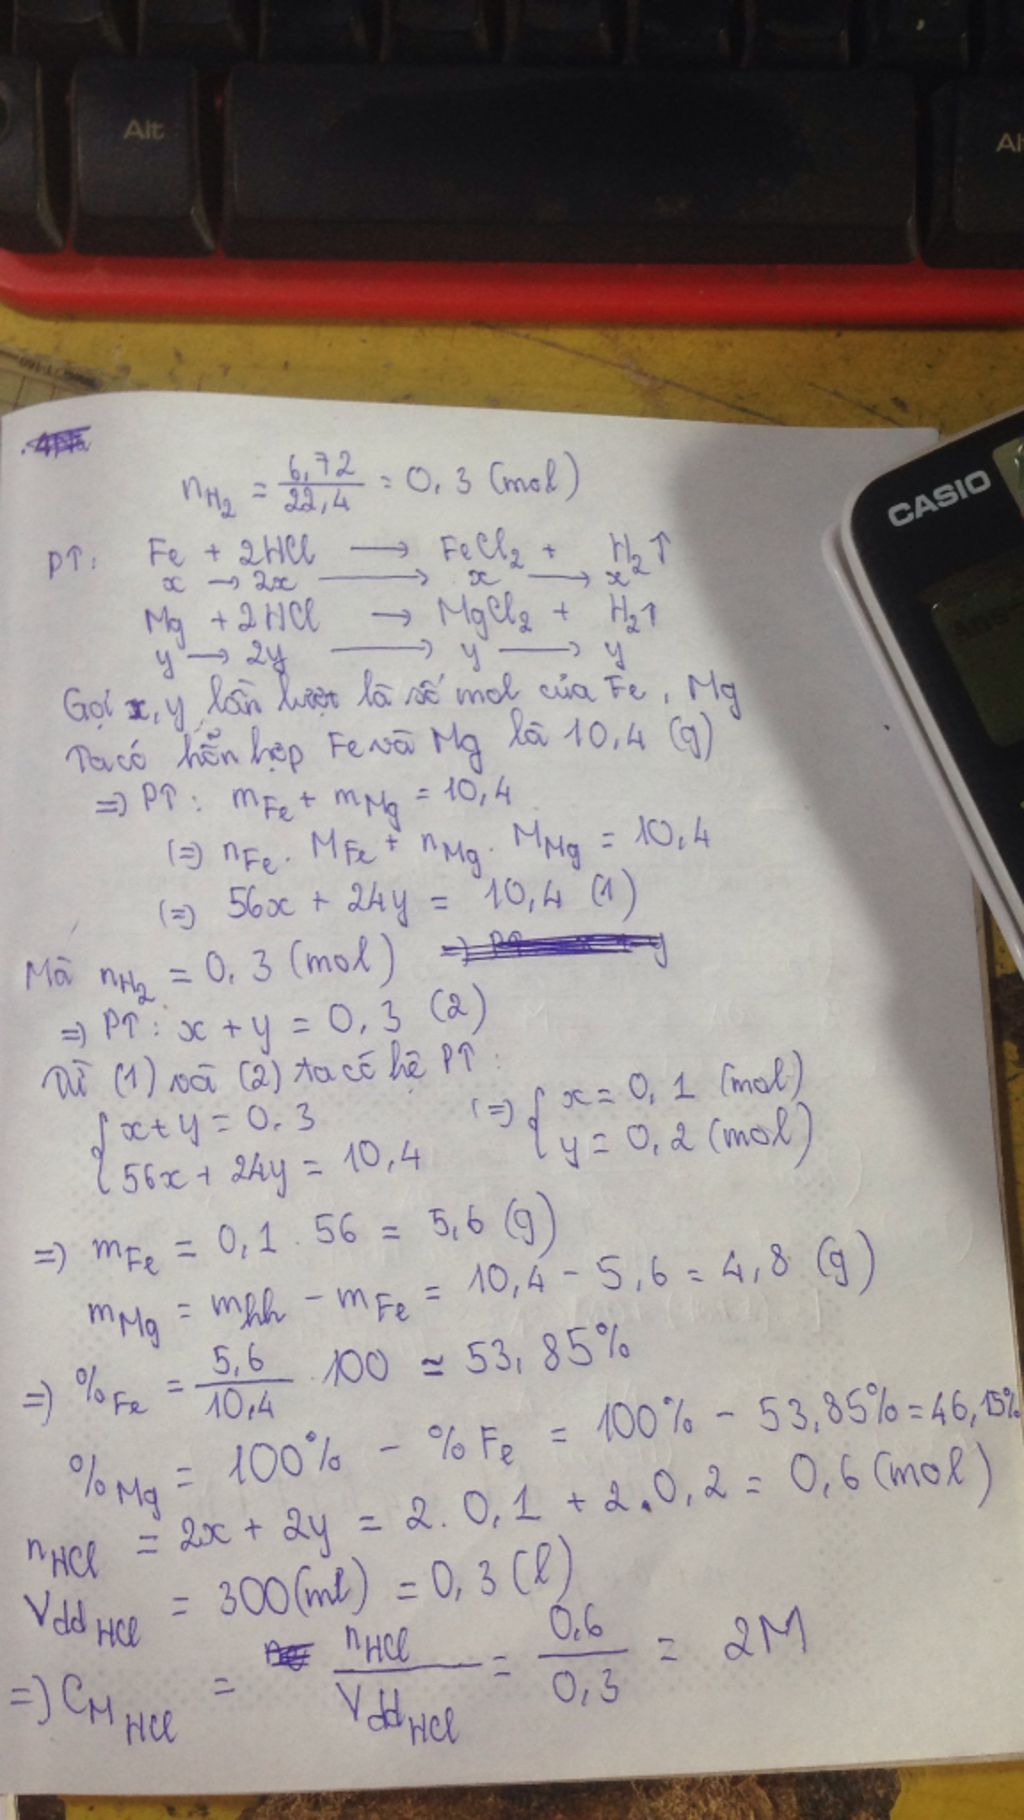 Alt
Al
CASIO
n_{H_2} = \frac{6,72}{22,4} = 0,3 (mol)
PT: Fe + 2HCl → FeCl_2 + H_2↑
x → 2x → x → x
Mg + 2HCl → MgCl_2 + H_2↑
y → 2y → y → y
Gọi x, y lần lượt là số mol của Fe, Mg
Ta có hỗn hợp Fe và Mg là 10,4 (g)
=) PT: m_{Fe} + m_{Mg} = 10,4
(=) n_{Fe} . M_{Fe} + n_{Mg} . M_{Mg} = 10,4
(=) 56x + 24y = 10,4 (1)
Mà n_{H_2} = 0,3 (mol)
=) PT: x + y = 0,3 (2)
Từ (1) và (2) ta có hệ PT:
{ x + y = 0,3 (=) { x = 0,1 (mol)
56x + 24y = 10,4 y = 0,2 (mol)
=) m_{Fe} = 0,1 . 56 = 5,6 (g)
m_{Mg} = m_{hh} - m_{Fe} = 10,4 - 5,6 = 4,8 (g)
=) %_{Fe} = \frac{5,6}{10,4} . 100 ≃ 53,85%
%_{Mg} = 100% - %Fe = 100% - 53,85% = 46,15%
n_{HCl} = 2x + 2y = 2. 0,1 + 2.0,2 = 0,6 (mol)
V_{dd_{HCl}} = 300(ml) = 0,3 (l)
=) C_{M_{HCl}} = \frac{n_{HCl}}{V_{dd_{HCl}}} = \frac{0,6}{0,3} = 2M